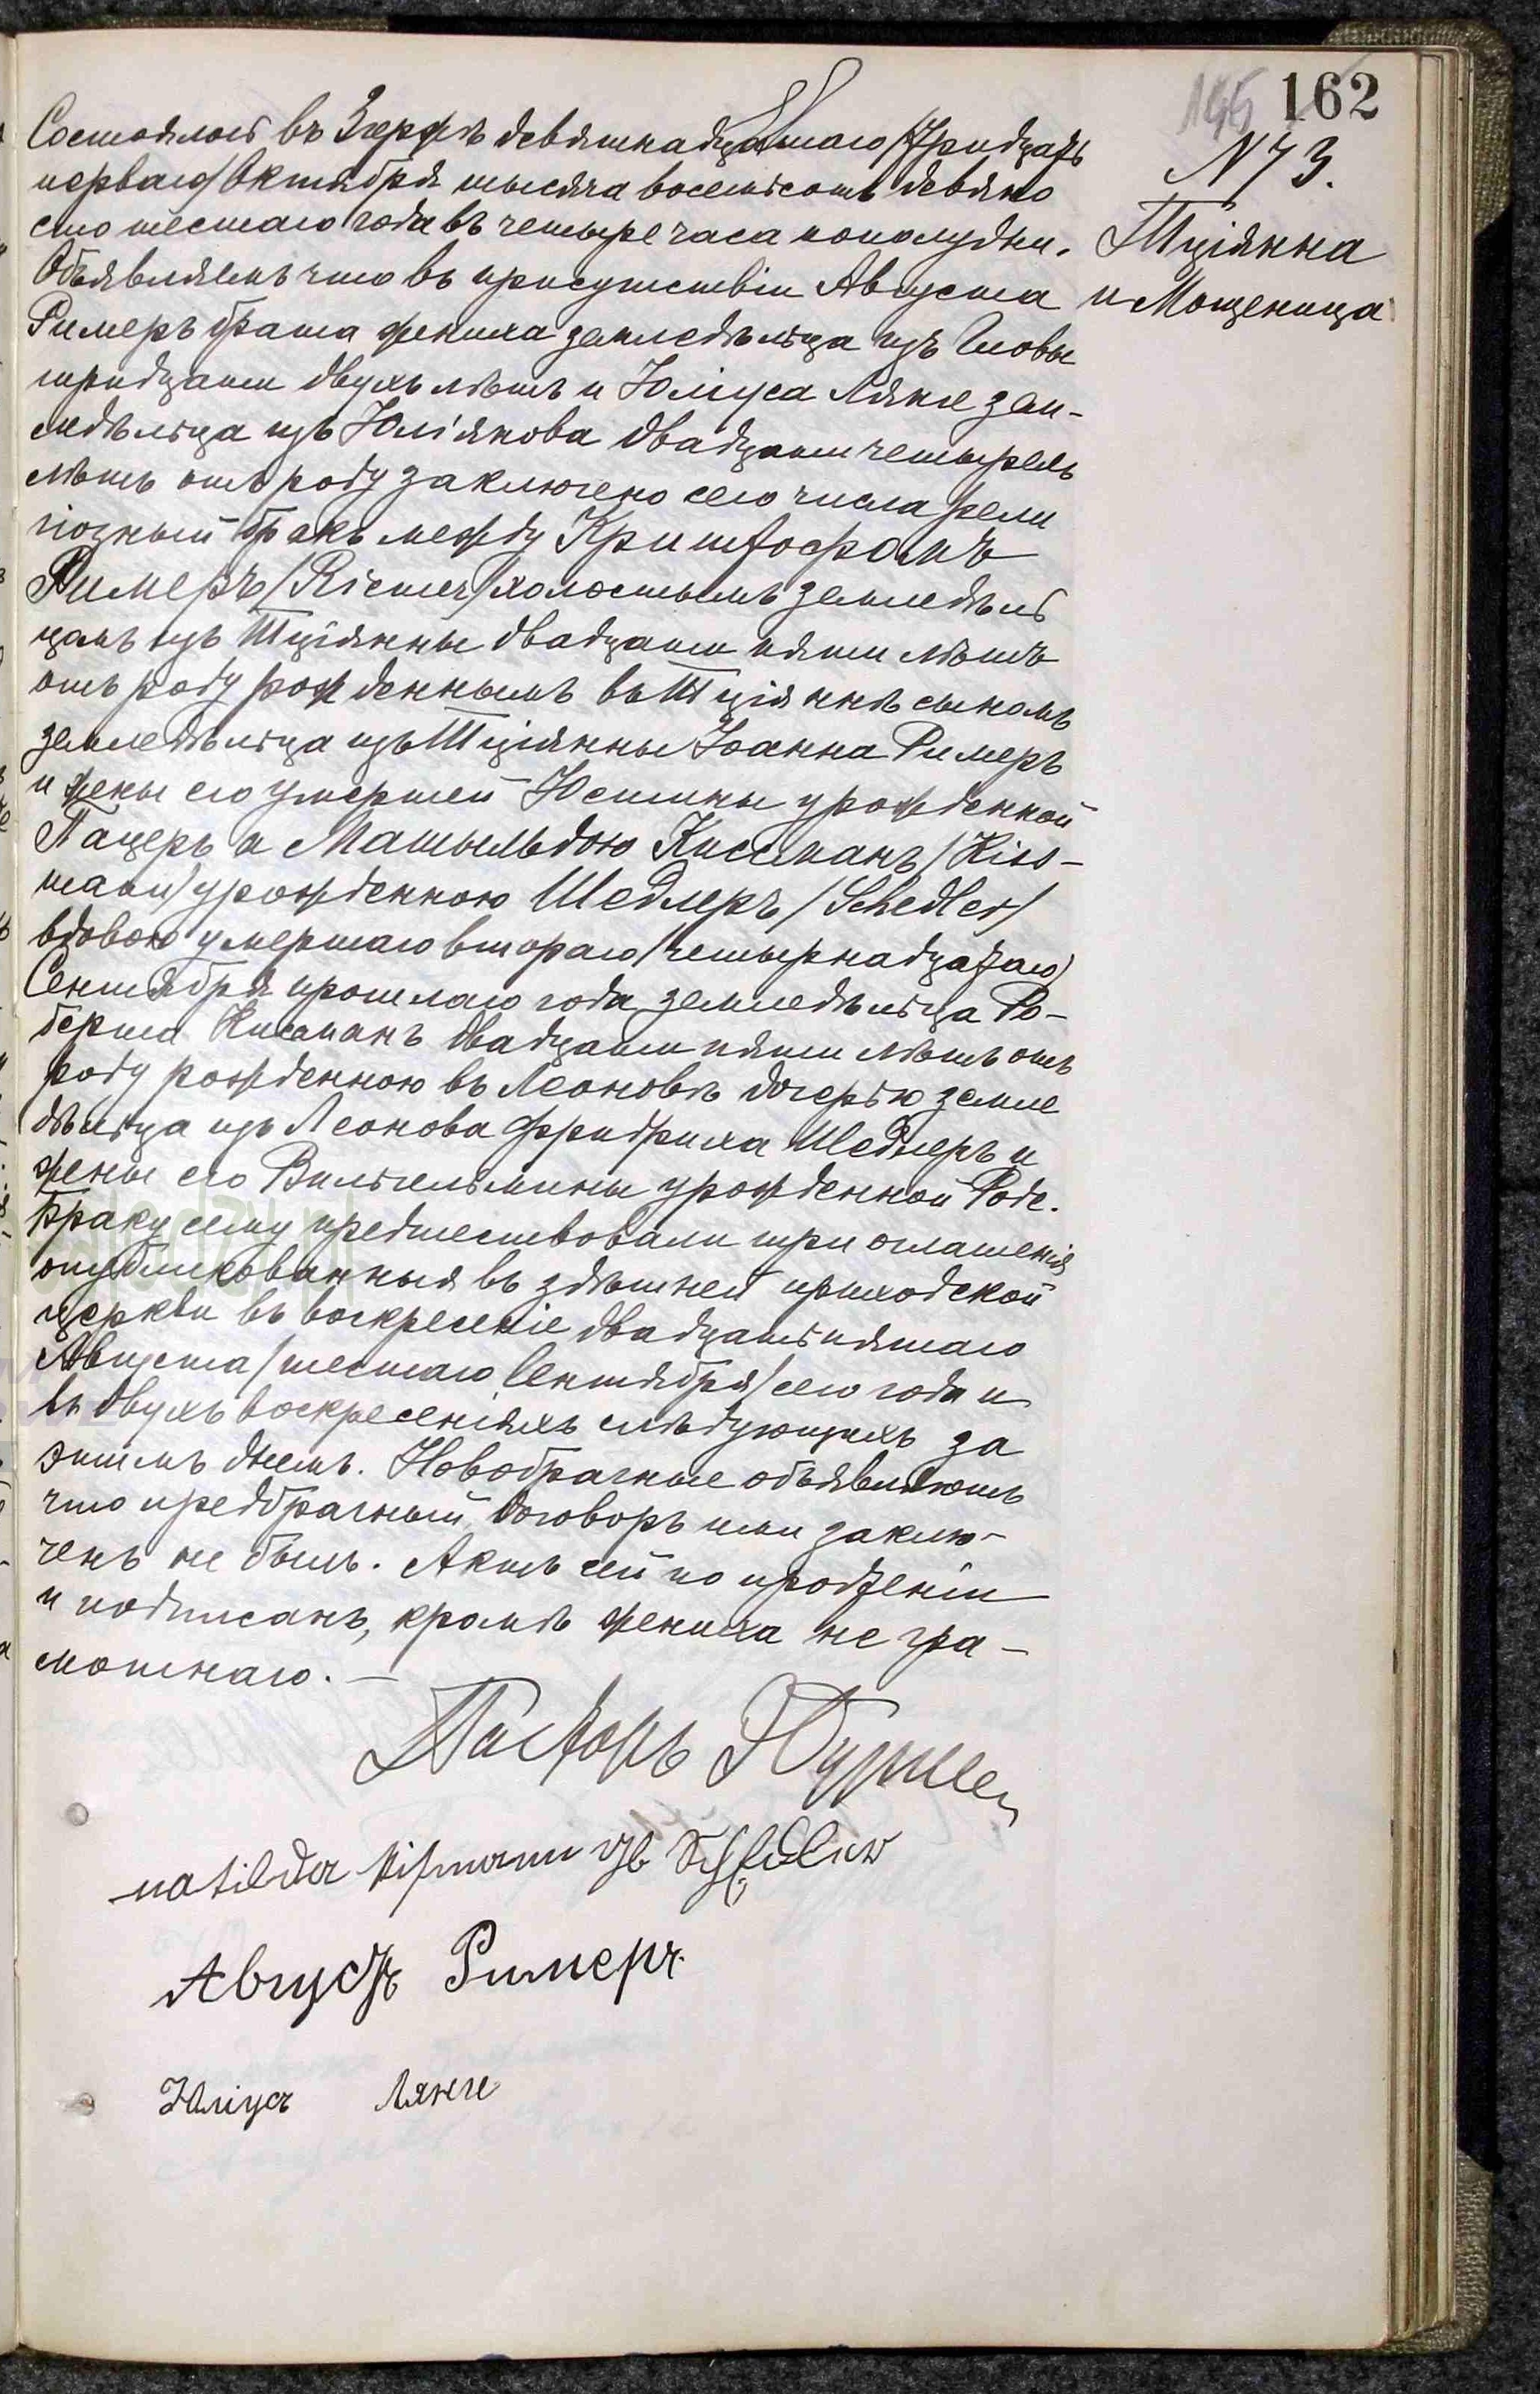 145 162
N 73.
Тщіянна
и Мощеница
Состоялось въ Згержѣ девятнадцатаго/тридцать
перваго/Октября тысяча восемьсотъ девяно
сто шестаго года въ четыре часа пополудни.
Объявляемъ что въ присутствіи Августа
Ример брата жениха земледѣльца изъ
тридцати двухъ лѣтъ и Юліуса Лянге зем-
ледѣльца изъ Юліянова двадцати четырехъ
лѣтъ отъ роду заключено сего числа рели
гіозный бракъ между Криштофомъ
Римеръ/Riemer/холостымъ земледѣль
цемъ изъ Тщіянны двадцати пяти лѣтъ
отъ роду рожденнымъ въ Тщіяннѣ сыномъ
земледѣльца изъ Тщіянны Іоанна Римеръ
и жены его умершей Юстины урожденной
Пацеръ и Матыльдою Кисманъ/Kiss-
mann/урожденною Шедлеръ/Schedler/
вдовою умершаго втораго/четырнадцатаго/
Сентября прошлаго года земледѣльца Ро-
берта Кисманъ двадцати пяти лѣтъ отъ
роду рожденною въ Леоновѣ дочерью земле
дѣльца изъ Леонова Фридриха Шедлеръ и
жены его Вильгельмины урожденной Роде.
Браку сему предшествовали три оглашенія
опубликованныя въ здѣшней приходской
церкви въ воскресеніе двадцать пятаго
Августа/шестаго Сентября/сего года и
въ двухъ воскресеніяхъ слѣдующихъ за
этимъ днемъ. Новобрачные объявляютъ
что предбрачный договоръ ими заклю-
ченъ не былъ. Актъ сей по прочтеніи
и подписанъ, кромѣ жениха не гра-
мотнаго. —
Пасторъ
matilda Kismann gb Schedler
Августъ Римеръ
Юліусъ Лянге